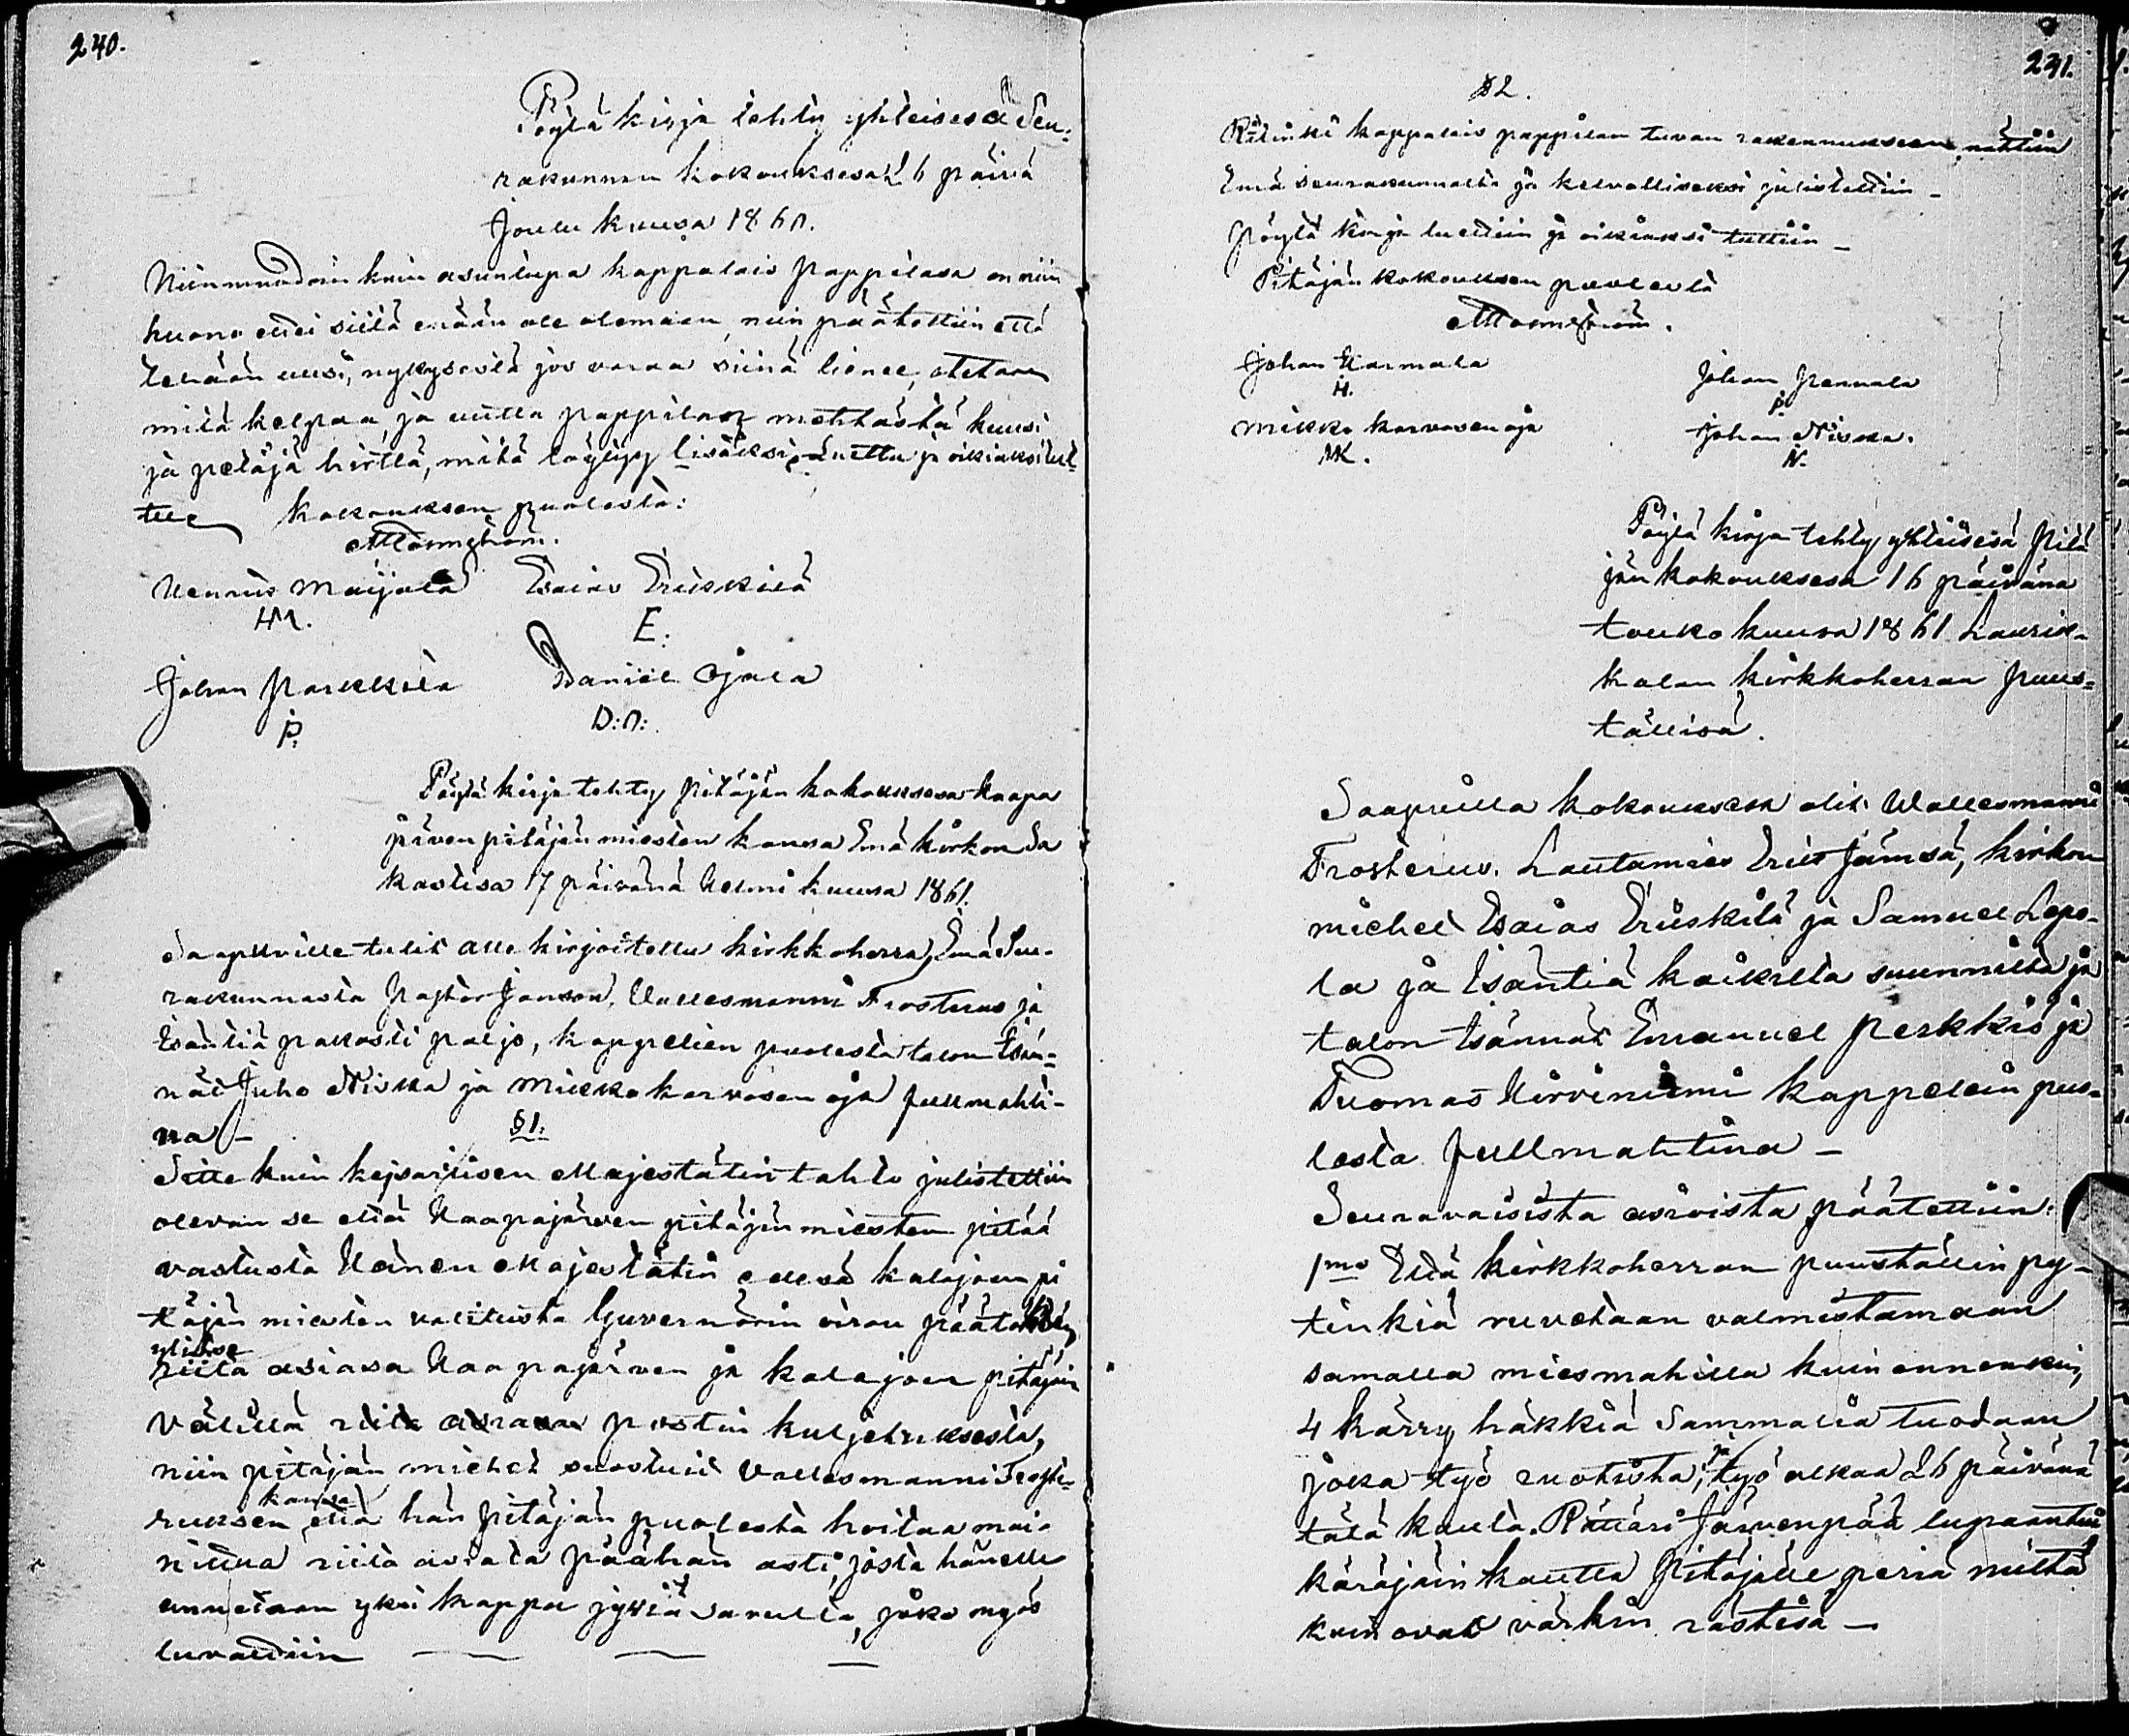 240.
Pöytä kirja tehty yhteisesä Seu-
rakunnan kokouksesa 26 päivä
Joulu kuusa 1860.
Niinmuodoin kuin asuntupa kappalais pappilasa on niin
huono ettei siitä enään ole olemaan, niin päätettiin että
tehään uusi, nykysestä jos varaa siinä lienee, otetaan
mitä kelpaa, ja uutta pappilan mehtästä kuusi
ja petäjä hirttä, mitä löytyy lisäksi, luettu ja oikiaksi tut-
ttu Kokouksen puolesta:
Hennis Maijala Esaias Eriskilä
HM. E.
Johan Parkkila Daniel Ojala
P. D:O:
Pöytä kirja tehty pitäjän kokouksesa Haapa
järven pitäjän miesten kansa Emäkirkon Sa
kastisa 17 päivänä Helmi kuusa 1861.
Saapuville tulit alle kirjoitettu kirkkoherra, Emä Seu-
rakunnasta Pastor Janson, Vallesmanni Frosterus ja
Esäntiä paksosti paljo, kappelien puolesta talon Esän-
nät Juho Niska ja Mikko karvosen oja fullmahti-
na -
§1.
Sitte kuin kejsarillisen Majestätin tahto julistettiin
olevan se että Haapajärven pitäjän miesten pitää
vastusta Hänen Majestätin edesä kalajoen pi
täjän miesten valitusta Guvernörin viran päätöksen
ylitse
siitä asiasa Haapajärven ja kalajoen pitäjän
välillä postin kuljetuksesta,
niin pitäjän miehet suostuit Vallesmanni Froste-
kansa
ruksen että hän pitäjän puolesta hoitaa mai-
nittua siitä asiata päähän asti, josta hänelle
annetaan yksi kappa jyviä savulta, joko myös
luvattiin
241.
§2.
Rätinki kappalais pappilan tuvan rakennukseen nähtiin
Emä seurakunnalta ja kelvolliseksi julistettiin -
Pöytä kirja luettiin ja oikiaksi tuttiin -
Pitäjän kokouksen puolesta
Johan Karmala Johan Pernala
H. P.
Mikko karvosen oja Johan Niska.
MK. N.
Pöytä kirja tehty yhteisesä Pitä
jän kokouksesa 16 päivänä
touko kuusa 1861 Lauris-
kalan kirkkoherran puus-
tällisä.
Saapuilla kokouksesa olit: Wallesmanni
Frosterus. Lautamies Eriit Jämsä, kirkon
miehet Esaias Eriskilä ja Samuel Lepo-
la ja Esäntiä kaikilta suunnilta ja
talon Esännät Emanuel Perkkiö ja
Tuomas Hirviniemi kappelein puo-
lesta fullmahtina -
Seuravaisista asioista päätettiin:
1mo Että kirkkoherran puuställin py-
tinkiä ruvetaan valmistamaan
samalla miesmahilla kuin ennenkin,
4 kärry häkkiä Sammalia tuodaan
joka työ ruotista, ja työ alkaa 26 päivänä
tätä kuuta. Räätäri Järvenpää lupaantui
käräjäin kautta Pitäjälle periä niiltä
kuin ovat värkin rästisä -